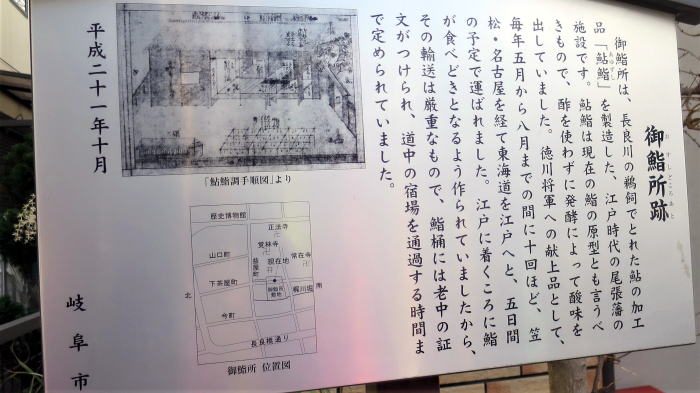 御鮨所跡
おすしどころあと
御鮨所は、長良川の鵜飼でとれた鮎の加工
品「鮎鮨」を製造した、江戸時代の尾張藩の
あゆずし
施設です。鮎鮨は現在の鮨の原型とも言うべ
きもので、酢を使わずに発酵によって酸味を
出していました。徳川将軍への献上品として、
毎年五月から八月までの間に十回ほど、笠
松・名古屋を経て東海道を江戸へと、五日間
の予定で運ばれました。江戸に着くころに鮨
が食べどきとなるよう作られていましたから、
その輸送は厳重なもので、鮨桶には老中の証
文がつけられ、道中の宿場を通過する時間ま
で定められていました。
「鮎鮨調手順図」より
歴史博物館
正法寺
覚林寺
山口町
益屋町
現在地
常在寺
下茶屋町
御鮨所
敷地
梶川堀
北
南
今町
長良橋通り
御鮨所 位置図
平成二十一年十月
岐阜市